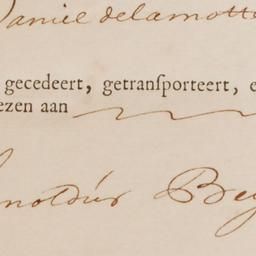 Daniel delamotte
gecedeert, getransporteert, e
ezen aan
noldús Bey